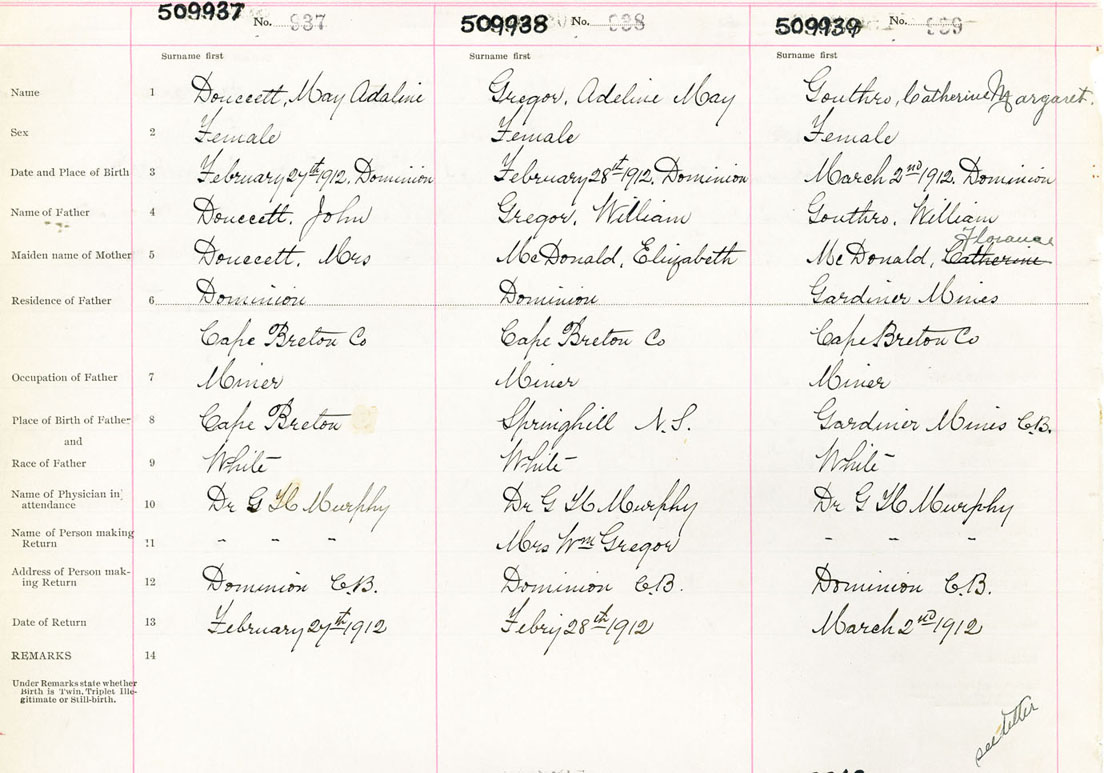 509937 No. 937 509938 No. 938 509939 No. 939
Surname first Surname first Surname first
Name 1 Doucett, May Adaline Gregor, Adeline May Gouthro, Catherine Margaret.
Sex 2 Female Female Female
Date and Place of Birth 3 February 27th 1912, Dominion February 28th 1912, Dominion March 2nd 1912, Dominion
Name of Father 4 Doucett, John Gregor, William Gouthro, William
Florance
Maiden name of Mother 5 Doucett, Mrs McDonald, Elizabeth McDonald, Catherine
Residence of Father 6 Dominion Dominion Gardiner Mines
Cape Breton Co Cape Breton Co Cape Breton Co
Occupation of Father 7 Miner Miner Miner
Place of Birth of Father 8 Cape Breton Springhill N.S. Gardiner Mines C.B.
and
Race of Father 9 White White White
Name of Physician in attendance 10 Dr G H Murphy Dr G H Murphy Dr G H Murphy
Name of Person making Return 11 - - - Mrs Wm Gregor - - -
Address of Person mak-
ing Return 12 Dominion C.B. Dominion C.B. Dominion C.B.
Date of Return 13 February 27th 1912 Febry 28th 1912 March 2nd 1912
REMARKS 14
Under Remarks state whether
Birth is Twin, Triplet Ille-
gitimate or Still-birth.
see letter